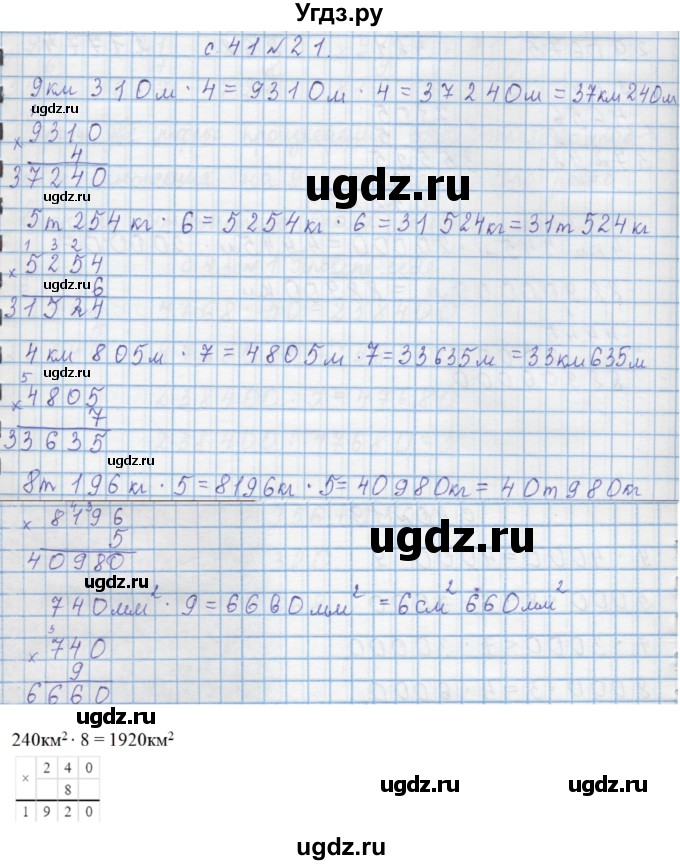 Угдз.ру
с 41 №21.
9км 310м · 4 = 9310м · 4 = 37240м = 37км 240м
ugdz.ru
× 9310
4
37240
ugdz.ru
ugdz.ru
5т 254кг · 6 = 5254кг · 6 = 31 524кг = 31т 524кг
1 3 2
× 5254
ugdz.ru
6
31524
4км 805м · 7 = 4805м · 7 = 33635м = 33км 635м
ugdz.ru
5
× 4805
7
33635
ugdz.ru
8т 196кг · 5 = 8196кг · 5 = 40980кг = 40т 980кг
4 3
× 8196
5
40980
ugdz.ru
ugdz.ru
740мм² · 9 = 6660мм² = 6см² 660мм²
3
× 740
9
6660
ugdz.ru
240км² · 8 = 1920км²
× 2 4 0
8
1 9 2 0
ugdz.ru
ugdz.ru
ugdz.ru